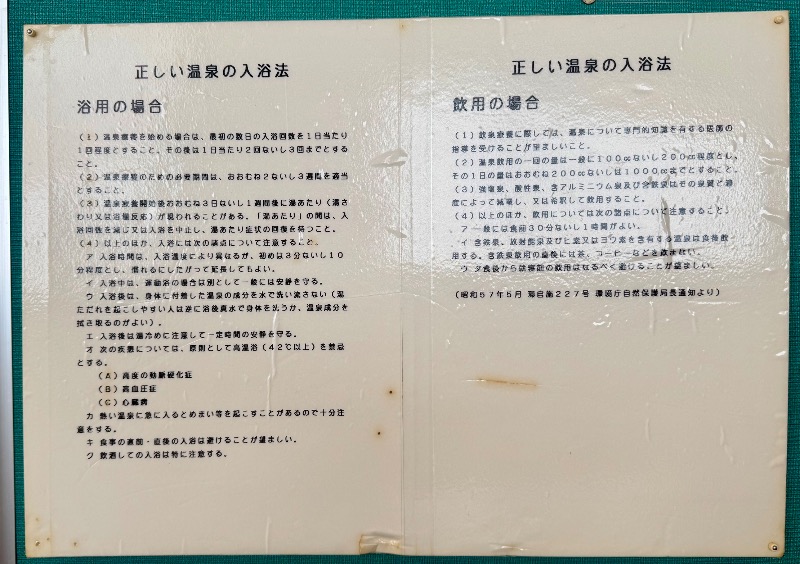 正しい温泉の入浴法
浴用の場合
(1)温泉療養を始める場合は、最初の数日の入浴回数を1日当たり
1回程度とすること。その後は1日当たり2回ないし3回までとする
こと。
(2)温泉療養のための必要期間は、おおむね2ないし3週間を適当
とすること。
(3)温泉療養開始後おおむね3日ないし1週間後に湯あたり(湯さ
わり又は浴湯反応)が現われることがある。「湯あたり」の間は、入
浴回数を減じ又は入浴を中止し、湯あたり症状の回復を待つこと。
(4)以上のほか、入浴には次の諸点について注意すること。
ア 入浴時間は、入浴温度により異なるが、初めは3分ないし10
分程度とし、慣れるにしたがって延長してもよい。
イ 入浴中は、運動浴の場合は別として一般には安静を守る。
ウ 入浴後は、身体に付着した温泉の成分を水で洗い流さない(湯
ただれを起こしやすい人は逆に浴後真水で身体を洗うか、温泉成分を
拭き取るのがよい)。
エ 入浴後は湯冷めに注意して一定時間の安静を守る。
オ 次の疾患については、原則として高温浴(42℃以上)を禁忌
とする。
(A)高度の動脈硬化症
(B)高血圧症
(C)心臓病
カ 熱い温泉に急に入るとめまい等を起こすことがあるので十分注
意をする。
キ 食事の直前・直後の入浴は避けることが望ましい。
ク 飲酒しての入浴は特に注意する。
正しい温泉の入浴法
飲用の場合
(1)飲泉療養に際しては、温泉について専門的知識を有する医師の
指導を受けることが望ましい。
(2)温泉飲用の一回の量は一般に100ccないし200cc程度とし、
その1日の量はおおむね200ccないし1000ccまでとすること。
(3)強塩泉、酸性泉、含アルミニウム泉及び含鉄泉はその泉質と濃
度によって減量し、又は希釈して飲用すること。
(4)以上のほか、飲用については次の諸点について注意すること。
ア 一般には食前30分ないし1時間がよい。
イ 含鉄泉、放射能泉及びヒ素又はヨウ素を含有する温泉は食後飲
用する。含鉄泉飲用の直後には茶、コーヒーなどを飲まない。
ウ 夕食後から就寝前の飲用はなるべく避けることが望ましい。
(昭和57年5月 環自施227号 環境庁自然保護局長通知より)